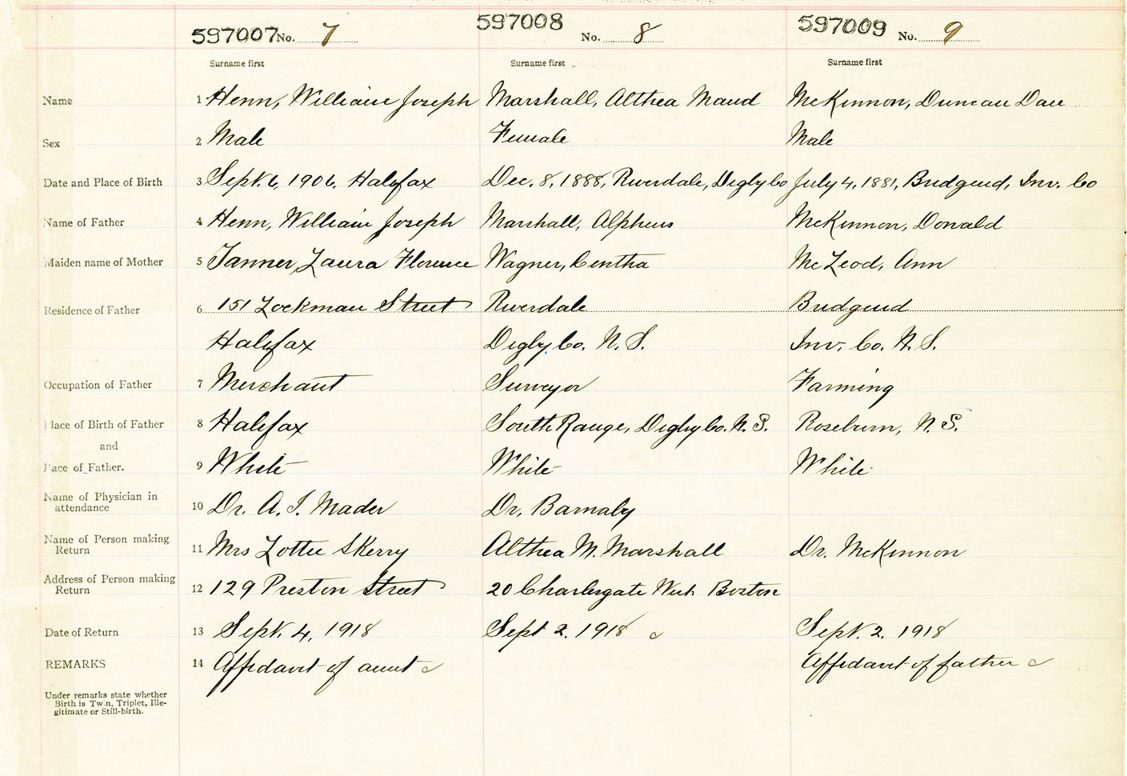 597007 No. 7 597008 No. 8 597009 No. 9
Surname first Surname first Surname first
Name 1 Henn, William Joseph Marshall, Althea Maud McKinnon, Duncan Dan
Sex 2 Male Female Male
Date and Place of Birth 3 Sept. 6, 1906, Halifax Dec. 8, 1888, Riverdale, Digby Co July 4, 1881, Bridgend, Inv. Co
Name of Father 4 Henn, William Joseph Marshall, Alpheus McKinnon, Donald
Maiden name of Mother 5 Tanner, Laura Florence Wagner, McLeod, Ann
Residence of Father 6 151 Lockman Street Riverdale Bridgend
Halifax Digby Co. N. S. Inv. Co. N. S.
Occupation of Father 7 Merchant Surveyor Farming
Place of Birth of Father 8 Halifax South Range, Digby Co. N. S. Roseburn, N. S.
and
Race of Father. 9 White White White
Name of Physician in
attendance 10 Dr. A. I. Mader Dr. Barnaby
Name of Person making
Return 11 Mrs Lottie Skerry Althea M. Marshall Dr. McKinnon
Address of Person making
Return 12 129 Preston Street 20 Charlesgate West Boston
Date of Return 13 Sept. 4, 1918 Sept 2. 1918 Sept. 2. 1918
REMARKS 14 Affidavit of aunt Affidavit of father
Under remarks state whether
Birth is Twin, Triplet, Ille-
gitimate or Still-birth.